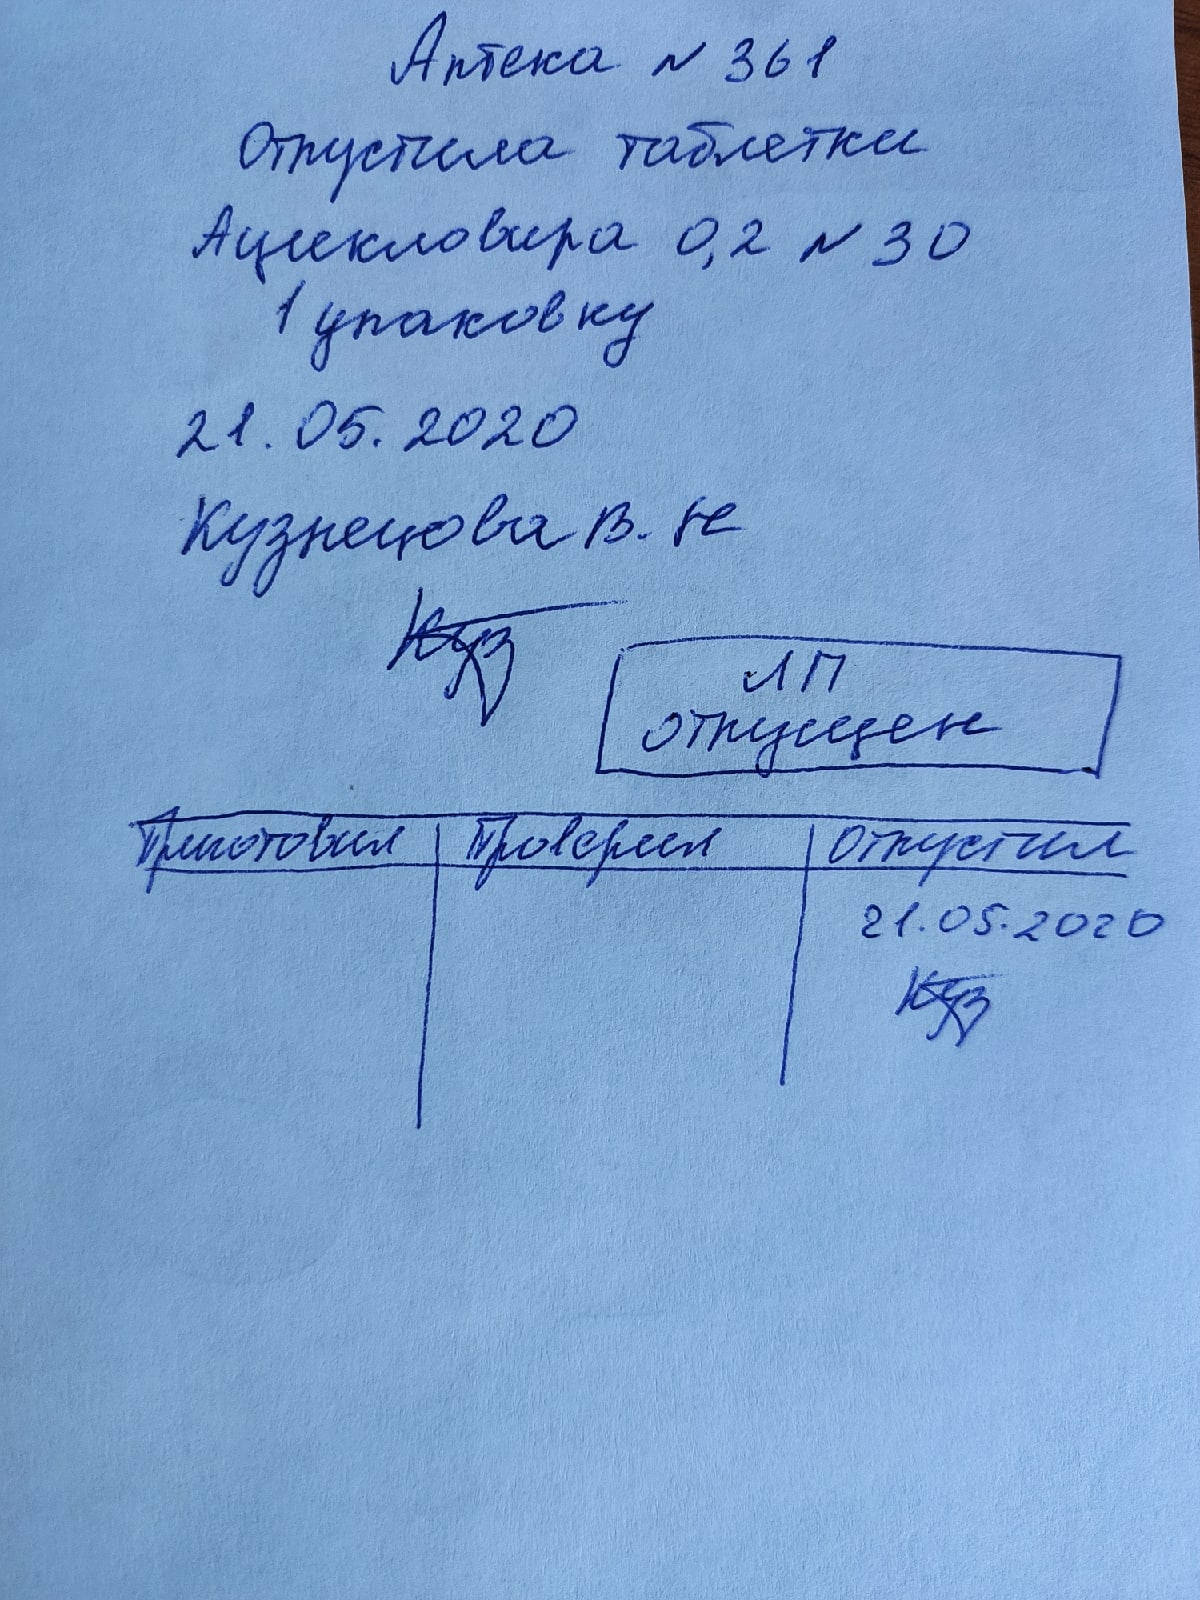 Аптека N 361
Отпустила таблетки
Ациекловира 0,2 N 30
1 упаковку
21.05.2020
Кузнецова В. Н
Куз
ЛП
отпущен
Приготовил Проверил Отпустил
21.05.2020
Куз